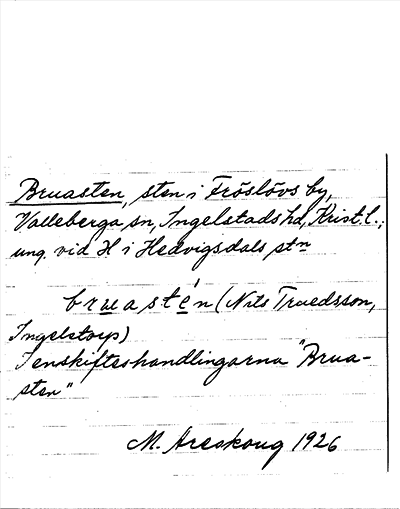 Bruasten, sten i Fröslövs by,
Valleberga sn, Ingelstads hd, Krist.l.;
ung. vid H i Hedvigsdals stn
bruastén (Nils Truedsson,
Ingelstorp)
I enskifteshandlingarna "Brua-
sten"
M. Areskoug 1926